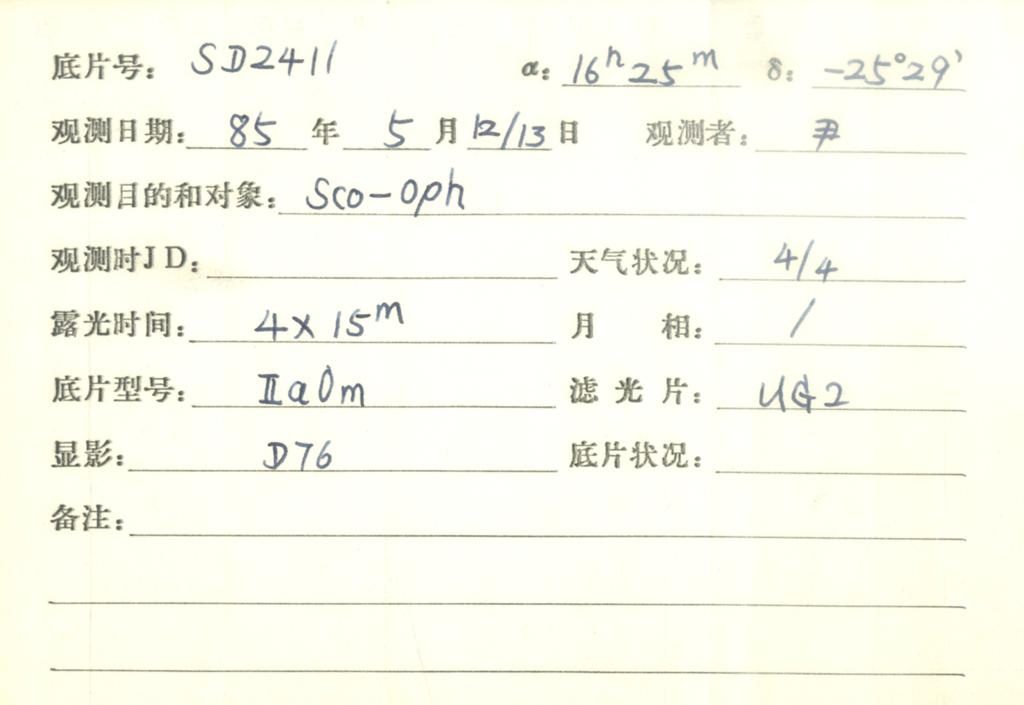 底片号: SD2411 α: 16h25m δ: -25°29'
观测日期: 85年 5月12/13日 观测者: 尹
观测目的和对象: Sco-Oph
观测时JD: 天气状况: 4/4
露光时间: 4×15m 月 相: /
底片型号: ⅡaOm 滤光片: UG2
显影: D76 底片状况:
备注: